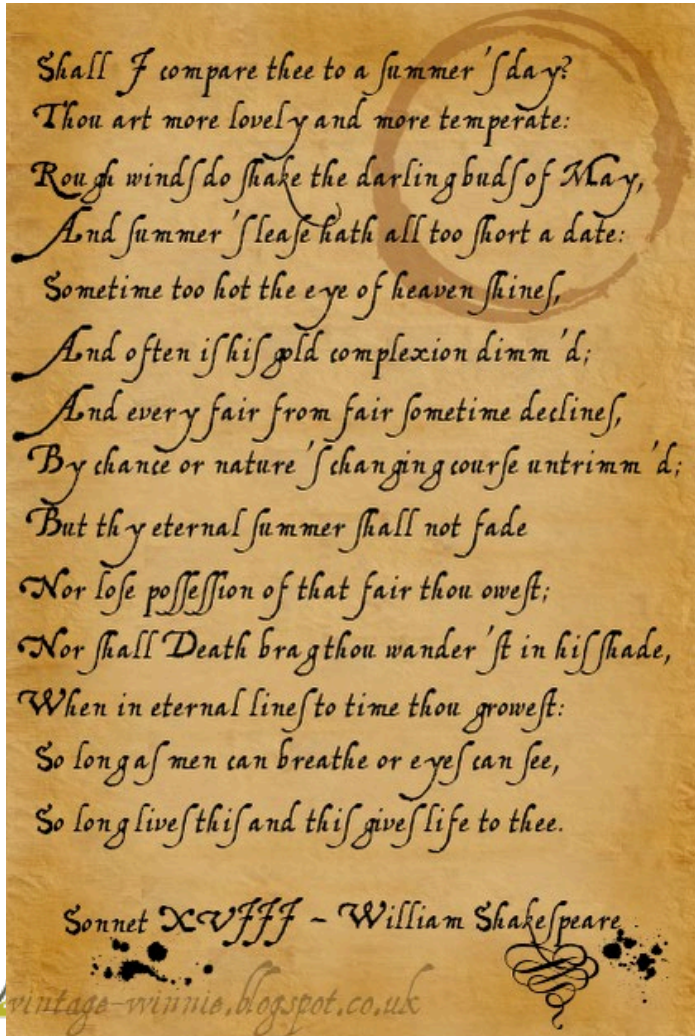 Shall I compare thee to a summer's day?
Thou art more lovely and more temperate:
Rough winds do shake the darling buds of May,
And summer's lease hath all too short a date:
Sometime too hot the eye of heaven shines,
And often is his gold complexion dimm'd;
And every fair from fair sometime declines,
By chance or nature's changing course untrimm'd;
But thy eternal summer shall not fade
Nor lose possession of that fair thou owest;
Nor shall Death brag thou wander'st in his shade,
When in eternal lines to time thou growest:
So long as men can breathe or eyes can see,
So long lives this and this gives life to thee.
Sonnet XVIII - William Shakespeare
vintage-winnie.blogspot.co.uk